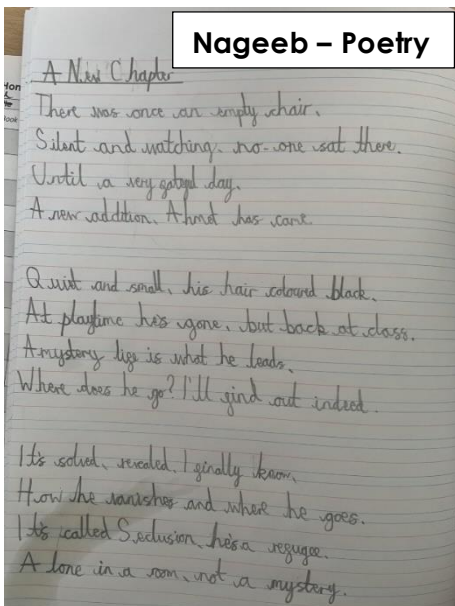 Nageeb – Poetry
A New Chapter
There was once an empty chair.
Silent and watching. no-one sat there.
Until a very fateful day.
A new addition. Ahmet has came.
Quiet and small, his hair coloured black.
At playtime he's gone, but back at class.
A mystery life is what he leads.
Where does he go? I'll find out indeed.
It's solved, revealed, I finally know.
How he vanishes and where he goes.
It's called Seclusion, he's a refugee.
A lone in a room, not a mystery.